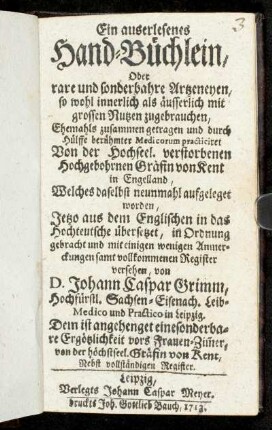 3
Ein auserlesenes
Hand-Büchlein,
Oder
rare und sonderbahre Artzeneyen,
so wohl innerlich als äusserlich mit
grossen Nutzen zugebrauchen,
Ehemahls zusammen getragen und durch
Hülffe berühmter Medicorum practiciret
Von der Hochseel. verstorbenen
Hochgebohrnen Gräfin von Kent
in Engelland,
Welches daselbst neunmahl aufgeleget
worden,
Jetzo aus dem Englischen in das
Hochteutsche übersetzet, in Ordnung
gebracht und mit einigen wenigen Anmer-
ckungen samt vollkommenen Register
versehen, von
D. Johann Caspar Grimm,
Hochfürstl. Sachsen-Eisenach. Leib-
Medico und Practico in Leipzig.
Dem ist angehenget eine sonderba-
re Ergötzlichkeit vors Frauen-Zim̃er,
von der höchstseel. Gräfin von Kent,
Nebst vollständigen Register.
Leipzig,
Verlegts Johann Caspar Meyer.
druckts Joh. Gottlieb Bauch, 1713.